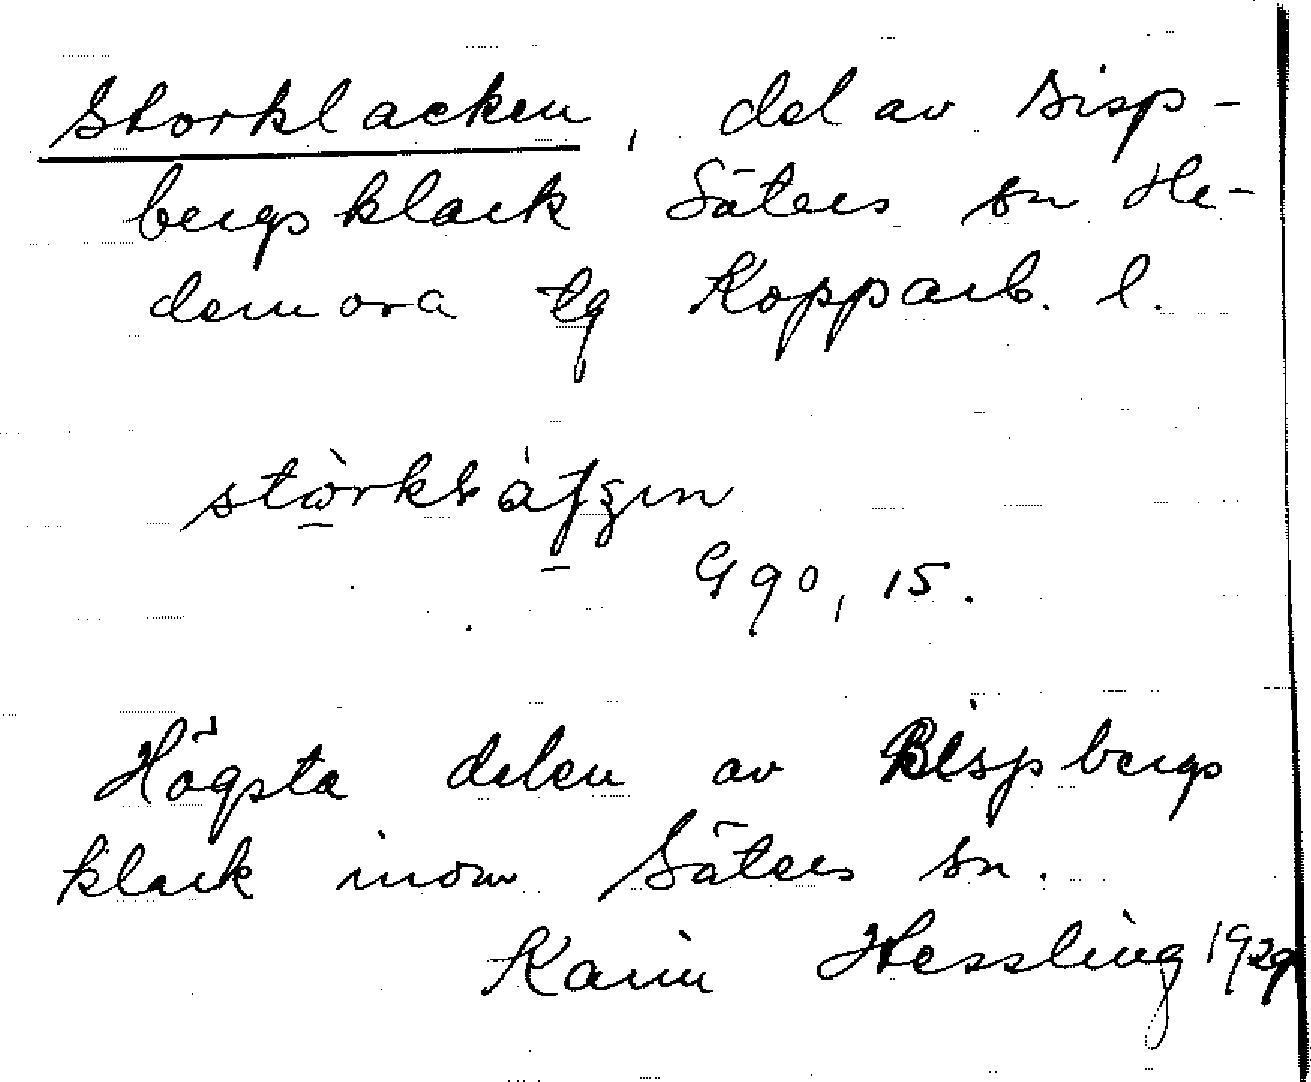 Storklacken, del av Bisp-
bergs klack Säters sn He-
demora tg Kopparb. l.
G 90, 15.
Högsta delen av Bispbergs
klack inom Säters sn.
Karin Hessling 1929